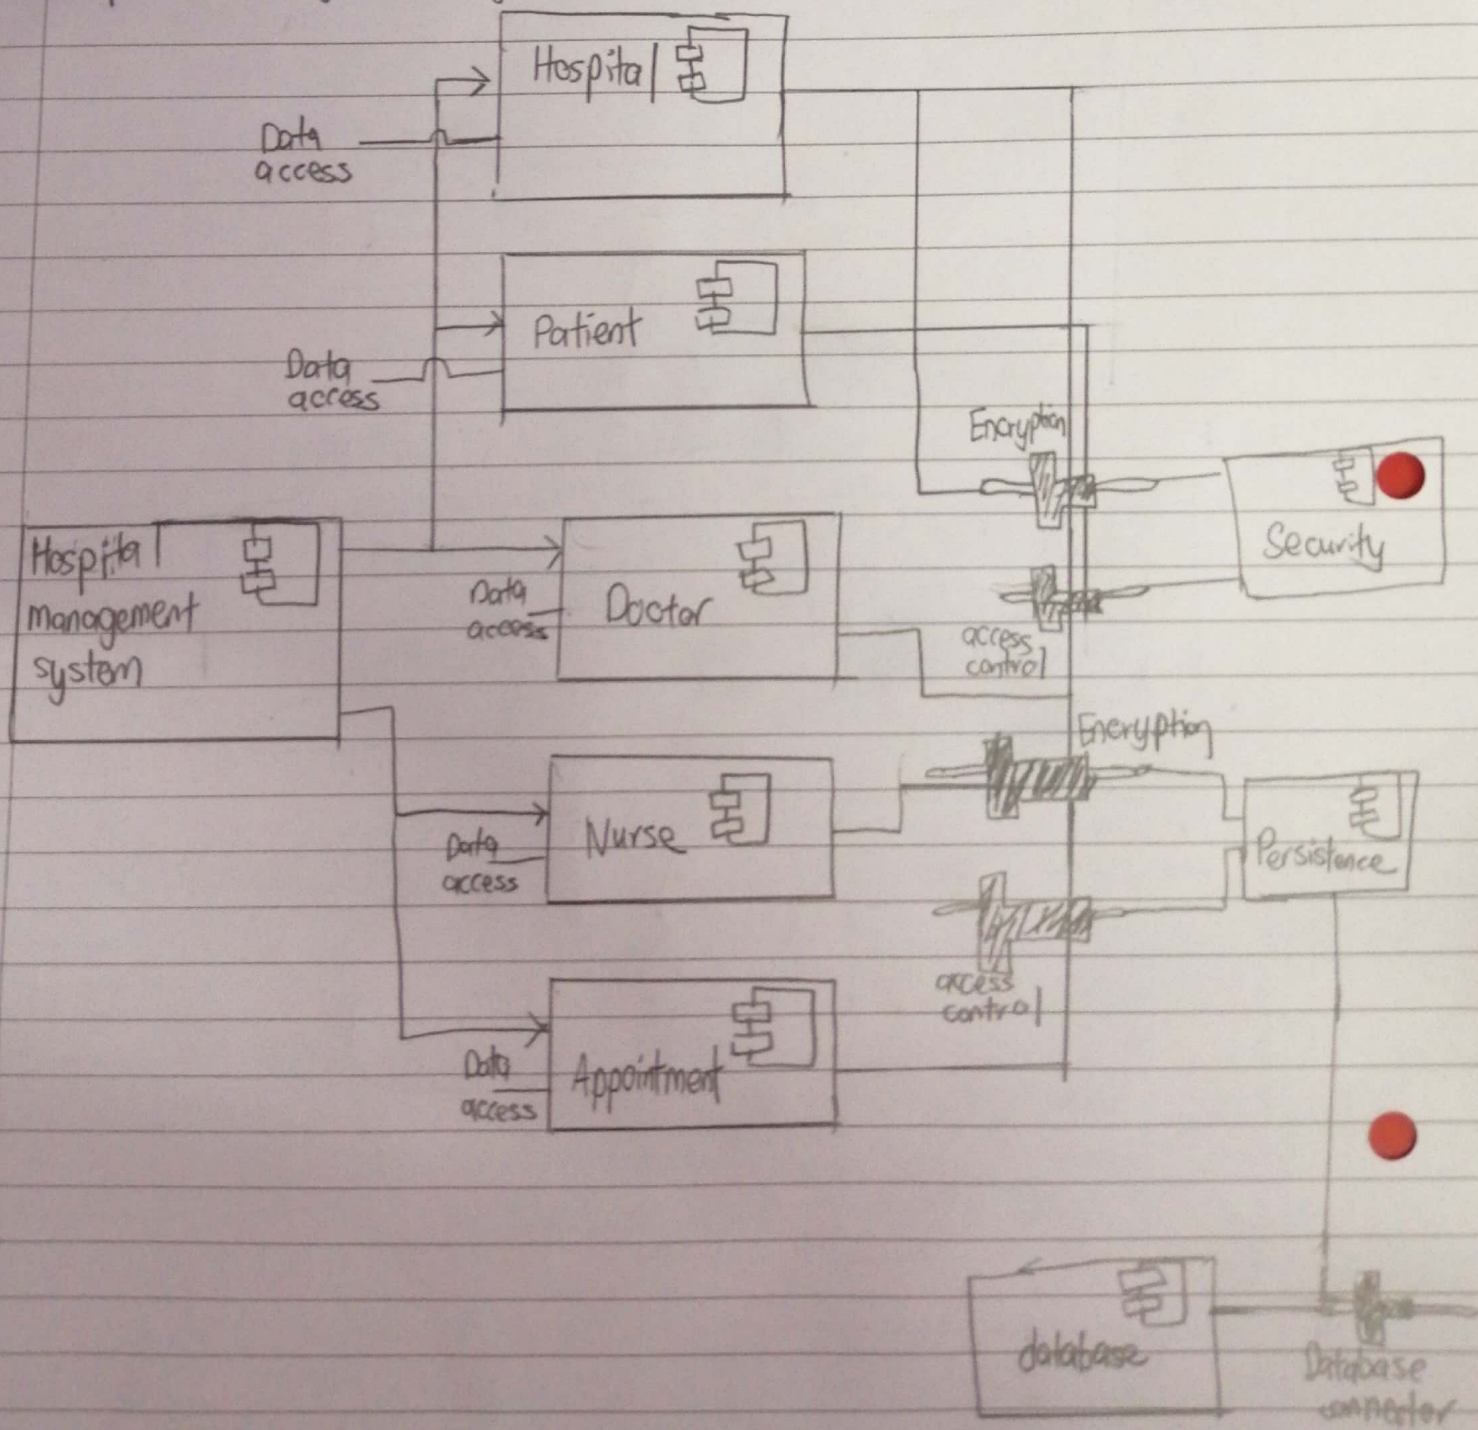 Hospital
Data
access
Patient
Data
access
Encryption
Security
Hospital
management
system
Data
access
Doctor
access
control
Encryption
Nurse
Data
access
Persistence
access
control
Data
access
Appointment
database
Database
connector